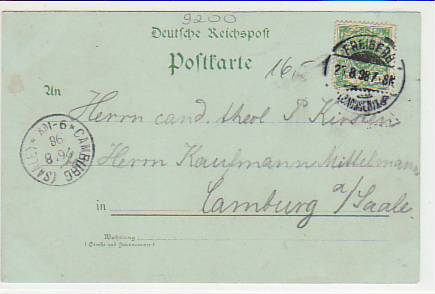 9200
Deutsche Reichspost
Postkarte
16,-
FREIBERG
8.98 7-8N
(SACHSEN)
An
Herrn cand. theol P. Kirsten
Herrn Kaufmann Mittelmann
CAMBURG (SAALE)
8.98
in Camburg a/Saale.
Wohnung
(Straße und Hausnummer)